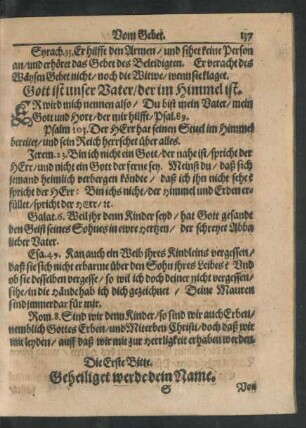 Vom Gebet. 137
Syrach. 35. Er hilfft den Armen / und sihet keine Person
an / und erhöret das Gebet des Beleidigten. Er veracht des
Waysen Gebet nicht / noch die Witwe / wenn sie klaget.
Gott ist unser Vater / der im Himmel ist.
ER wird mich nennen also / Du bist mein Vater / mein
Gott und Hort / der mir hilfft / Psal. 89.
Psalm 103. Der HErr hat seinen Stuel im Himmel
bereitet / und sein Reich herrschet über alles.
Jerem. 23. Bin ich nicht ein Gott / der nahe ist / spricht der
HErr / und nicht ein Gott der ferne sey. Meinst du / daß sich
jemand heimlich verbergen köndte / daß ich ihn nicht sehe?
spricht der HErr: Bin ichs nicht / der Himmel und Erden er-
füllet / spricht der HErr / ꝛc.
Galat. 6. Weil jhr denn Kinder seyd / hat Gott gesandt
den Geist seines Sohnes in ewre Hertzen / der schreyet Abba
lieber Vater.
Esa. 49. Kan auch ein Weib ihres Kindleins vergessen /
daß sie sich nicht erbarme über den Sohn ihres Leibes? Und
ob sie desselben vergesse / so wil ich doch deiner nicht vergessen /
sihe / in die Hände hab ich dich gezeichnet / Deine Mauren
sind immerdar für mir.
Rom. 8. Sind wir denn Kinder / so sind wir auch Erben /
nemblich Gottes Erben / und Miterben Christi / doch daß wir
mit leyden / auff daß wir mit zur Herrligkeit erhaben werden.
Die Erste Bitte.
Geheiliget werde dein Name.
S Von